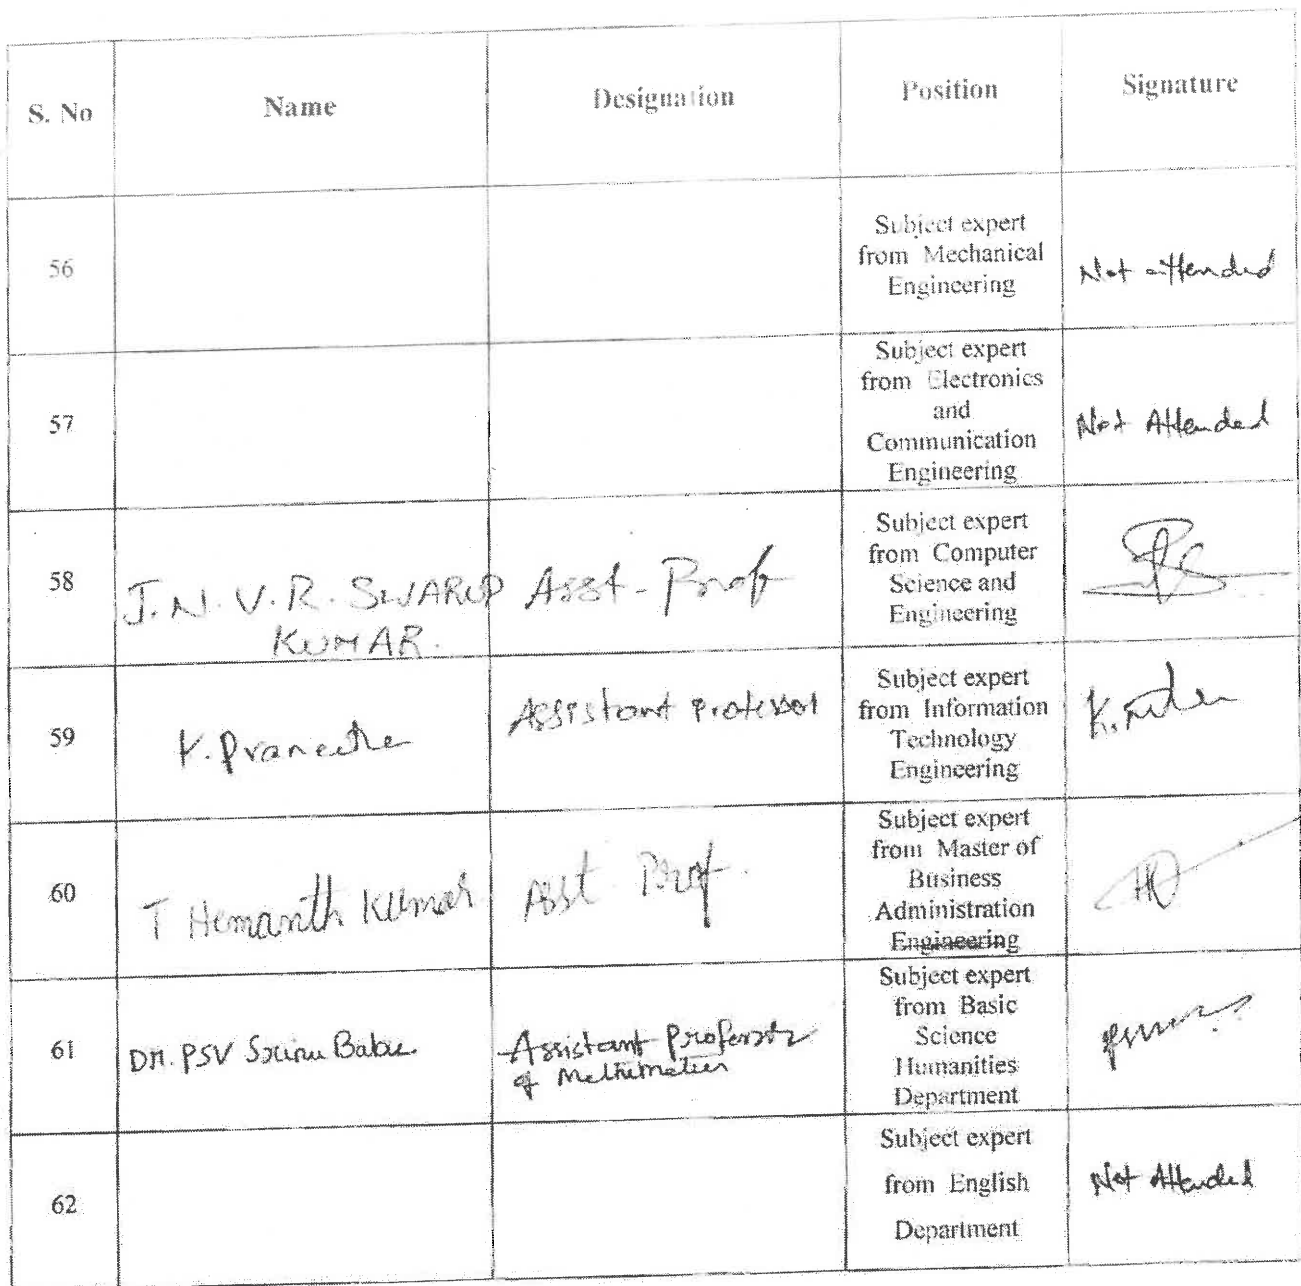 S. No
Name
Designation
Position
Signature
56
Subject expert
from Mechanical
Engineering
Not attended
57
Subject expert
from Electronics
and
Communication
Engineering
Not Attended
58
J. N. V. R. SWARUP
KUMAR.
Asst. Prof
Subject expert
from Computer
Science and
Engineering
59
K. Praneetha
Assistant Professor
Subject expert
from Information
Technology
Engineering
60
T Hemanth Kumar
Asst. Prof.
Subject expert
from Master of
Business
Administration
Engineering
61
Dr. PSV Srinu Babu.
Assistant Professor
of Mathematics
Subject expert
from Basic
Science
Humanities
Department
62
Subject expert
from English
Department
Not Attended